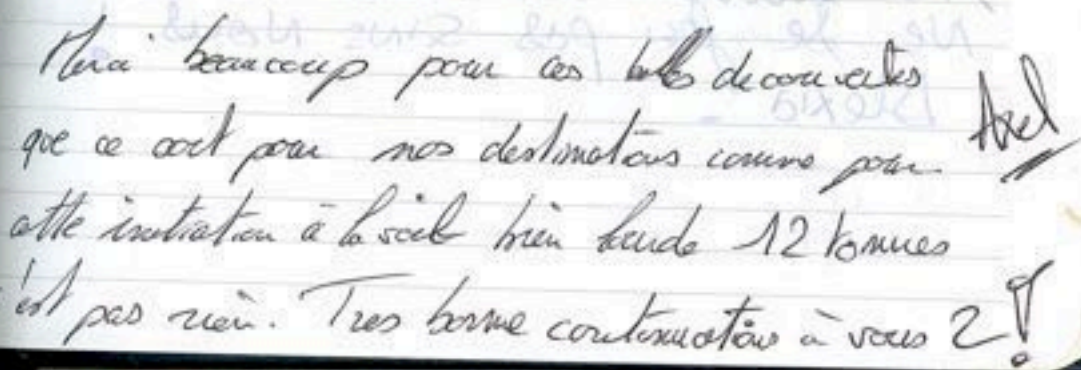 Merci beaucoup pour ces belles decouvertes
que ce soit pour nos destinations comme pour
cette initiation à la voile bien lourde 12 tonnes
c'est pas rien. Tres bonne continuation à vous 2 !
Axel